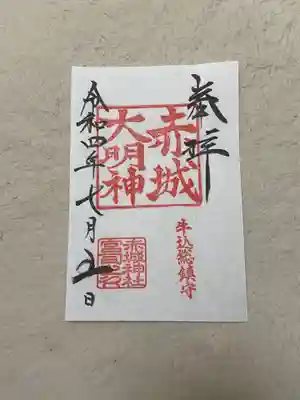 奉拝
赤城
大明神
牛込総鎮守
赤城神社
令和四年七月五日